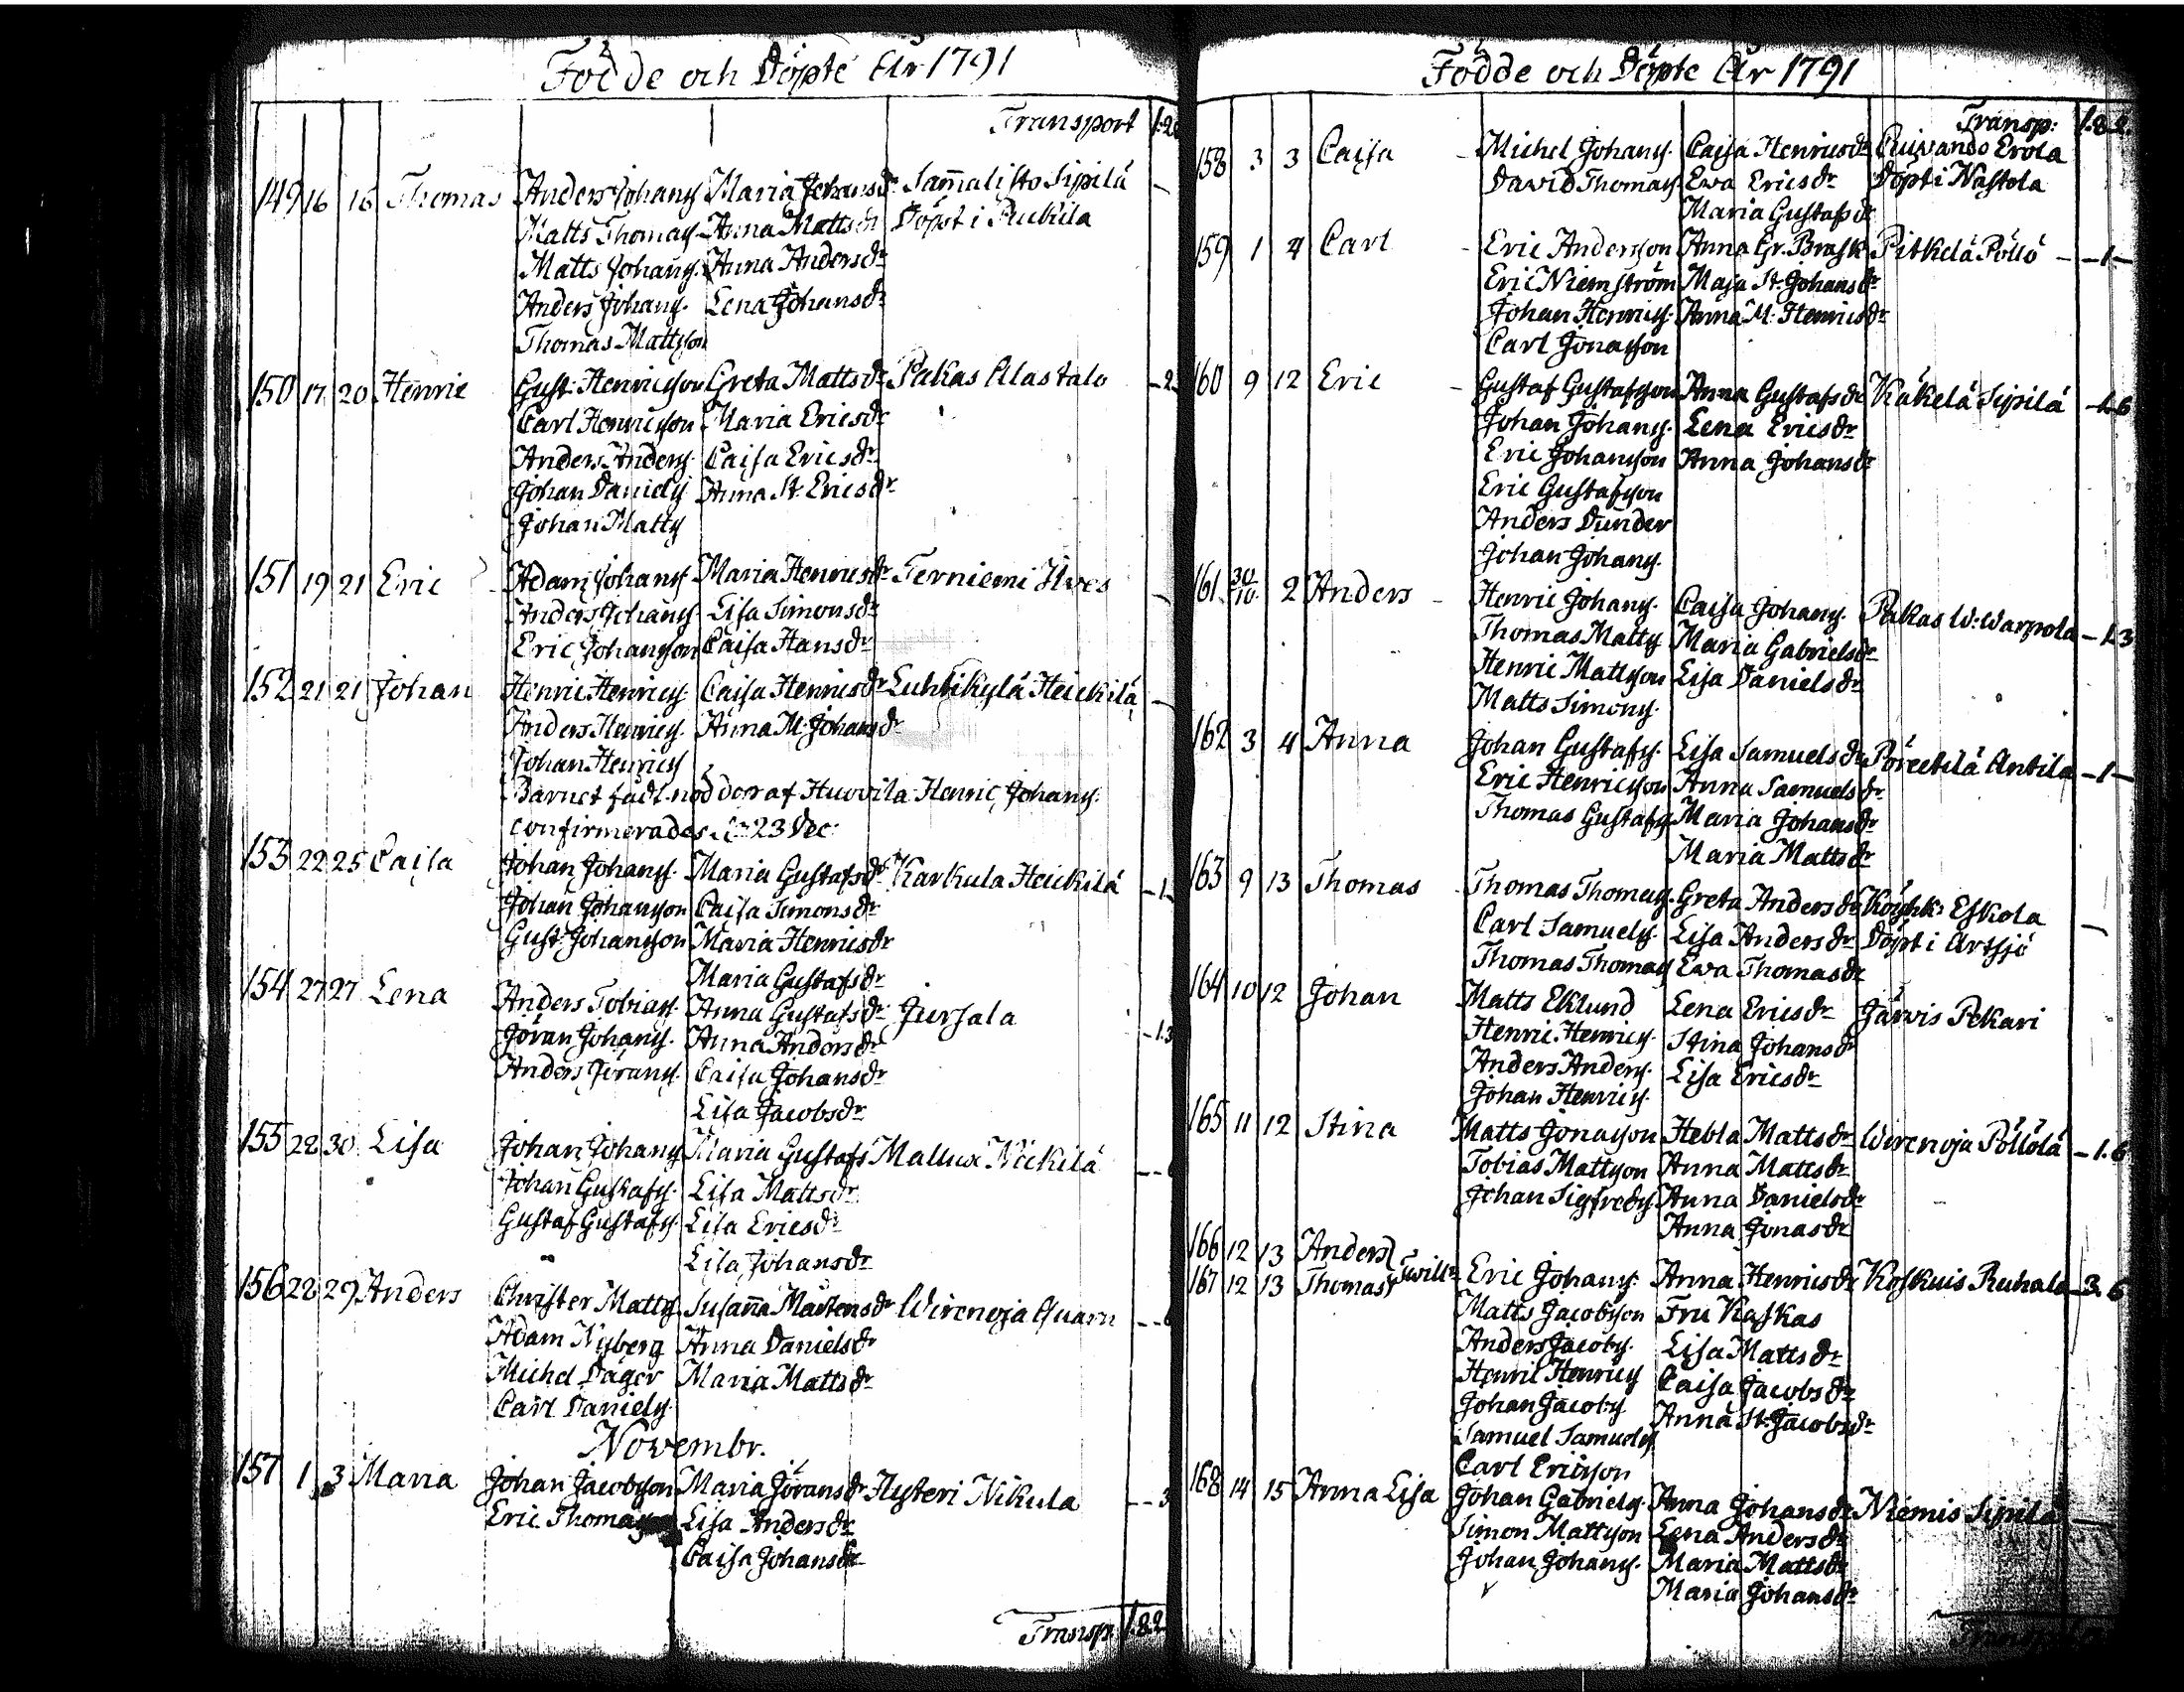 Födde och Döpte År 1791
Transport
149 16 16 Thomas Anders Johans. Maria Johansdr. Sam̃alisto Sipilä
Matts Thomas. Anna Mattsdr Döpt i Pukila
Matts Johans. Anna Andersdr
Anders Johans. Lena Johansdr
Thomas Mattsson
150 17 20 Henric Gust. Henricsson Greta Mattsdr. Pakas Alastalo - 2
Carl Henricsson Maria Ericsdr
Anders Anders. Caisa Ericsdr.
Johan Daniels. Anna St. Ericsdr
Johan Matts.
151 19 21 Eric Adam Johans. Maria Henricsdr Terniemi Ilves
Anders Johans. Lisa Simonsdr
Eric Johansson Caisa Hansdr
152 21 21 Johan Henric Henrics. Caisa Henricsdr Luhtikylä Heickilä
Anders Henrics. Anna M. Johansdr
Johan Henrics.
Barnet fådt nöddop af Huovila Henric Johans.
confirmerades 23 Dec:
153 22 25 Caisa Johan Johans. Maria Gustafsdr Karkula Heickilä - 1
Johan Johansson Caisa Simonsdr
Gust. Johansson Maria Henricsdr
Maria Gustafsdr
154 27 27 Lena Anders Tobias. Anna Gustafsdr Jursala - 1.3
Jöran Johans. Anna Andersdr
Anders Jörans. Caisa Johansdr
Lisa Jacobsdr
155 28 30 Lisa Johan Johans. Maria Gustafs Mallusx Nickilä
Johan Gustafs. Lisa Mattsdr
Gustaf Gustafs. Lisa Ericsdr
Lisa Johansdr
156 28 29 Anders Christer Matts. Susan̄a Mårtensdr Wirenoja Quarn
Adam Nyberg Anna Danielsdr
Michel Dager Maria Mattsdr
Carl Daniels.
Novembr.
157 1 3 Maria Johan Jacobsson Maria Jöransdr Hysteri Nikula - - 3
Eric Thomasson Lisa Andersdr
Caisa Johansdr
Transp. 1.82
Födde och Döpte År 1791
Transp: 1.82.
158 3 3 Caisa Michel Johans. Caisa Henricsdr Ruivando Erola
David Thomas. Ewa Ericsdr Döpt i Nastola
Maria Gustafsdr
159 1 4 Carl Eric Andersson Anna Gr. Brask Pitkelä Pöllö - 1 -
Eric Niemström Maja St. Johansdr
Johan Henrics. Anna M. Henricsdr
Carl Jonasson
160 9 12 Eric Gustaf Gustafsson Anna Gustafsdr Käkelä Sipilä - 1.6
Johan Johans. Lena Ericsdr
Eric Johansson Anna Johansdr
Eric Gustafsson
Anders Dunder
Johan Johans.
161 30/10 2 Anders Henric Johans. Caisa Johans. Pakas W: Warpola - 1.3
Thomas Matts. Maria Gabrielsdr
Henric Mattsson Lisa Danielsdr
Matts Simons.
162 3 4 Anna Johan Gustafs. Lisa Samuelsdr Pöreetilä Antila - 1 -
Eric Henricsson Anna Samuelsdr
Thomas Gustafs. Maria Johansdr
Maria Mattsdr
163 9 13 Thomas Thomas Thomas. Greta Andersdr Köyhk: Eskola
Carl Samuels. Lisa Andersdr Döpt i Artsjö
Thomas Thomas. Ewa Thomasdr
164 10 12 Johan Matts Eklund Lena Ericsdr Järvis Pekari
Henric Henrics. Stina Johansdr
Anders Anders. Lisa Ericsdr
Johan Henrics.
165 11 12 Stina Matts Jonasson Hebla Mattsdr Wirenoja Pöllölä - 1.6
Tobias Mattsson Anna Mattsdr
Johan Sigfreds. Anna Danielsdr
Anna Jonasdr
166 12 13 Anders
167 12 13 Thomas Twill. Eric Johans. Anna Henricsdr Koskuis Ruhala - 3.6
Matts Jacobsson Fru Kaskas
Anders Jacobs. Lisa Mattsdr
Henric Henrics. Caisa Jacobsdr
Johan Jacobs. Anna St. Jacobsdr
Samuel Samuels.
Carl Ericsson
168 14 15 Anna Lisa Johan Gabriels. Anna Johansdr Niemis Sipilä
Simon Mattsson Lena Andersdr
Johan Johans. Maria Mattsdr
Maria Johansdr